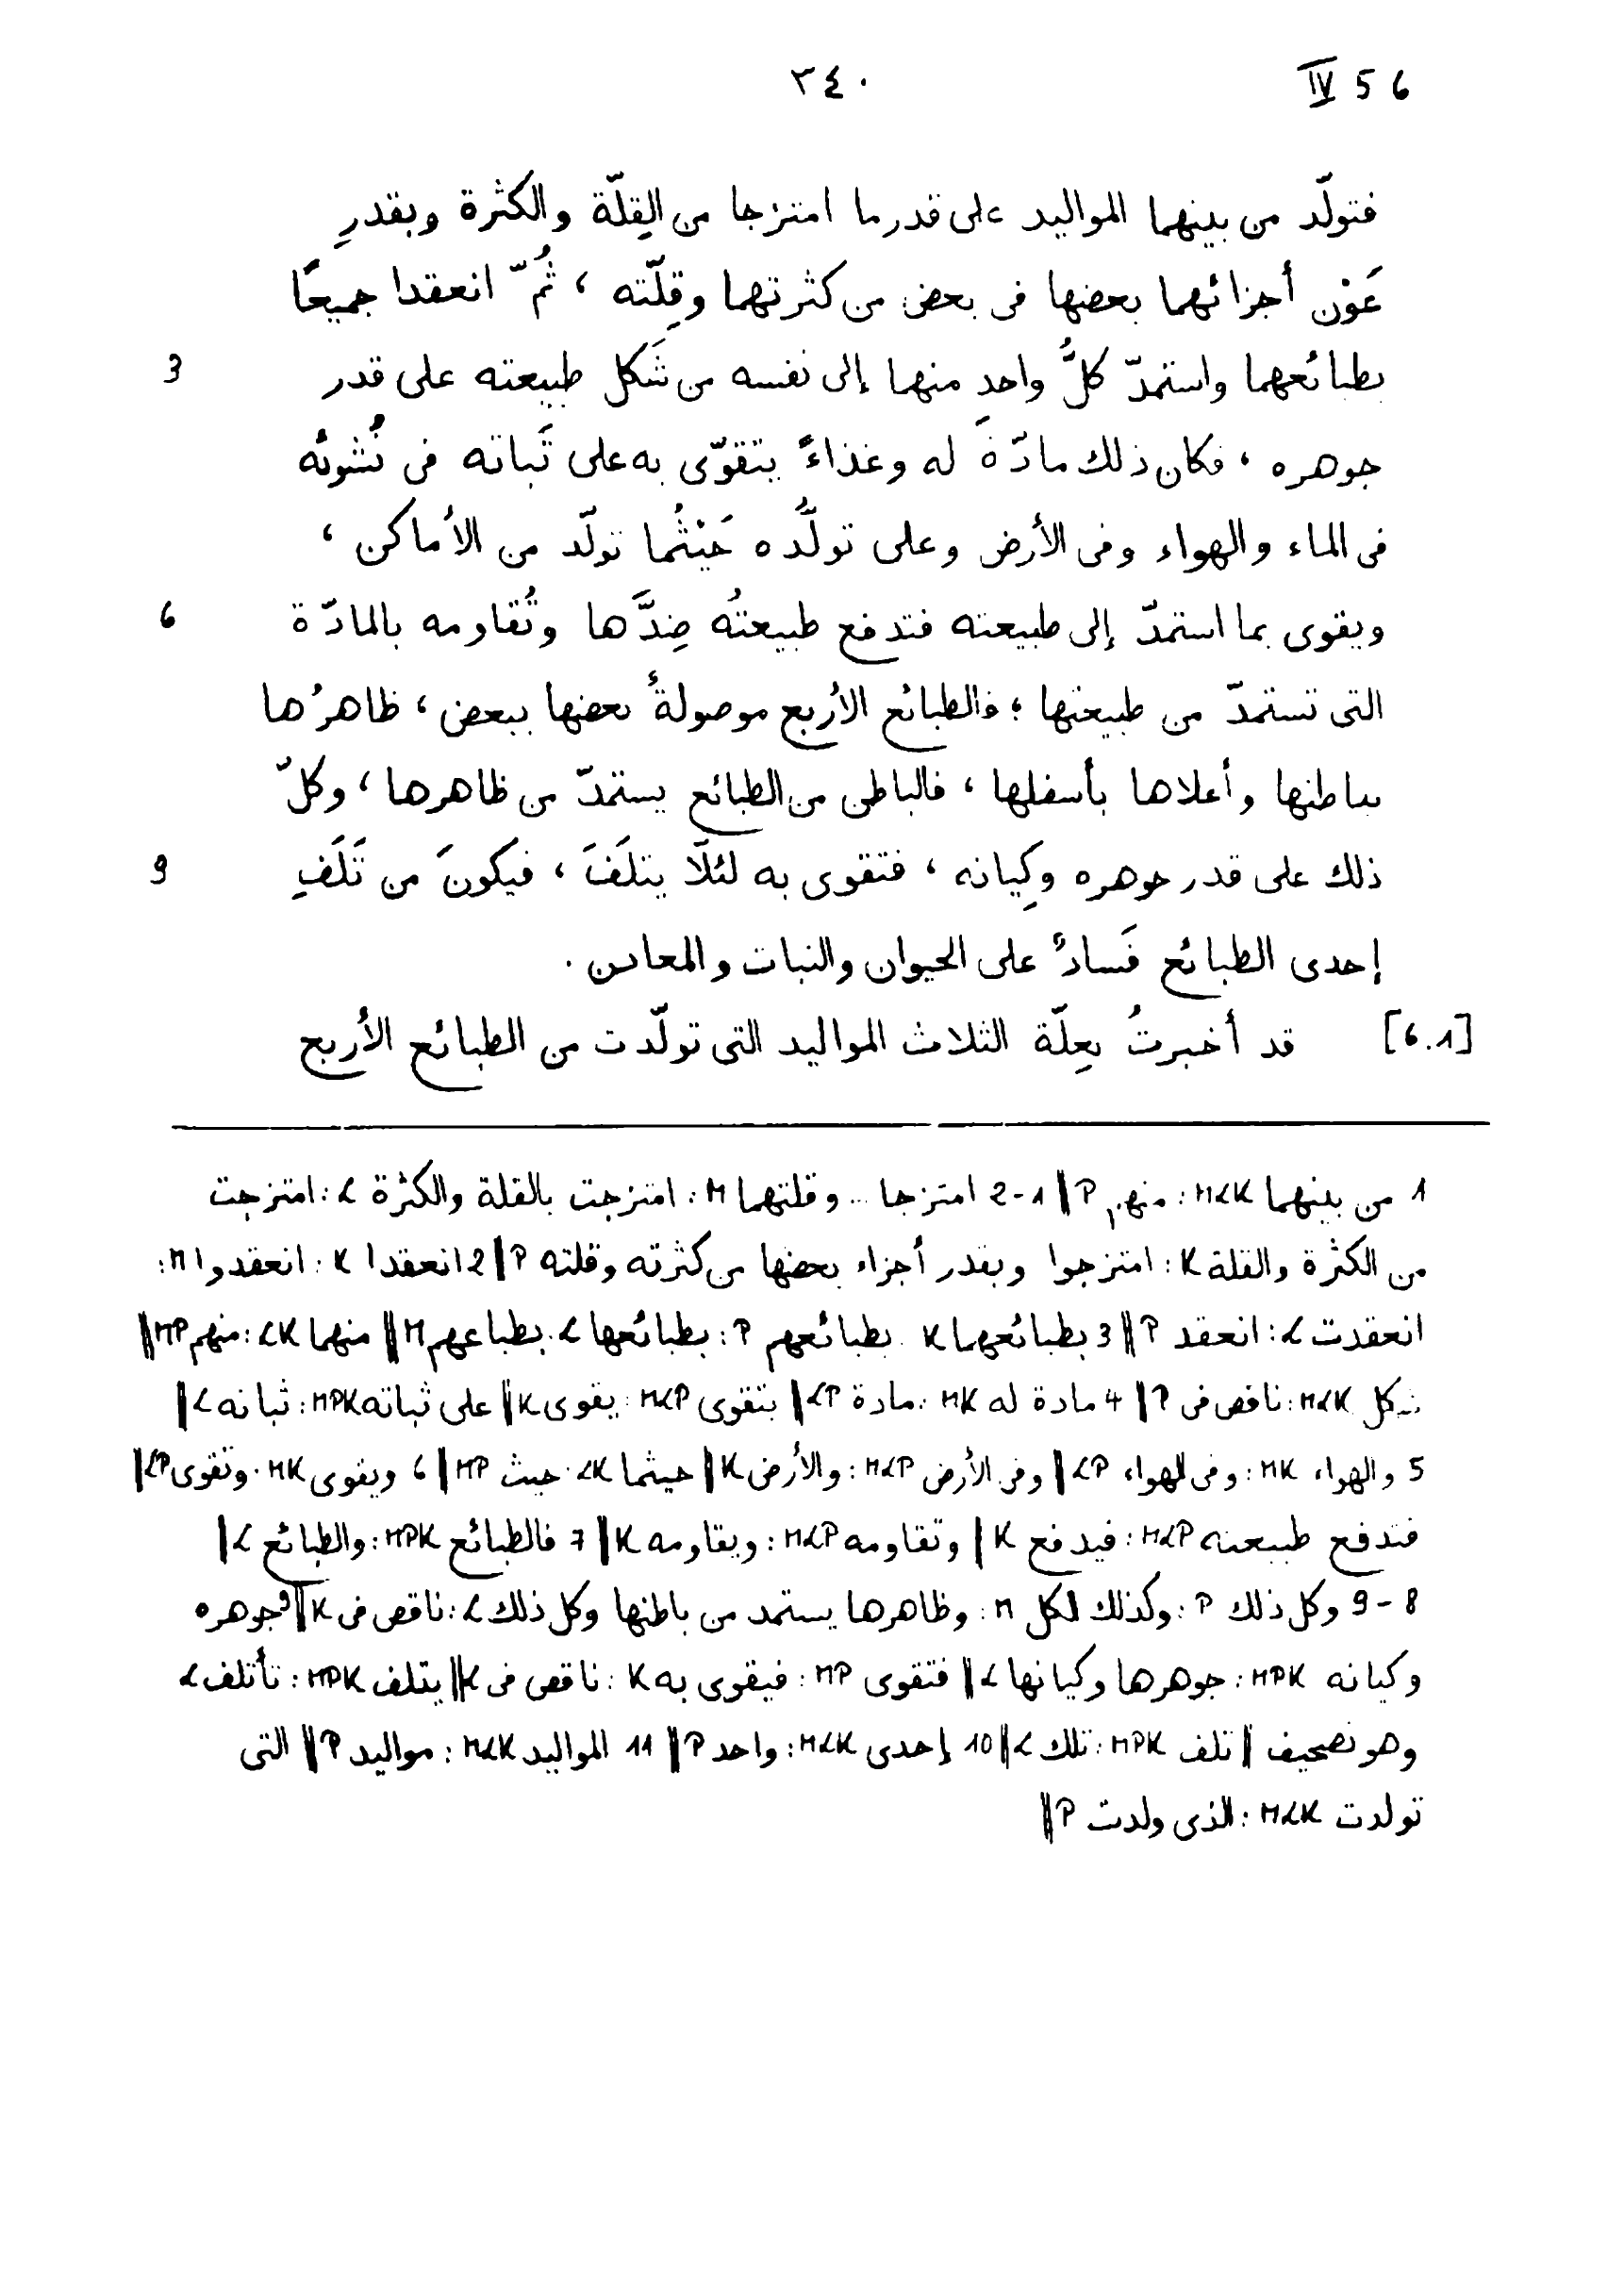 ٣٤٠ IV 5 6
فتولّد من بينهما المواليد على قدر ما امتزجا من القِلّة والكثرة وبقدرِ
عَوْن أجزائهما بعضها فى بعض من كثرتهما وقِلّته ، ثُمّ انعقدا جميعًا
بطبائعهما واستمدّ كلُّ واحدٍ منهما إلى نفسه من شَكل طبيعته على قدر 3
جوهره ، فكان ذلك مادّةً له وغذاءً يتقوّى به على ثَباته فى نُشوئه
فى الماء والهواء وفى الأرض وعلى تولُّده حَيْثُما تولّد من الأماكن ،
ويقوى بما استمدّ إلى طبيعته فتدفع طبيعتُه ضِدَّها وتُقاومه بالمادّة 6
التى تستمدّ من طبيعتها ؛ فالطبائع الأربع موصولةٌ بعضها ببعض ، ظاهرُها
بباطنها وأعلاها بأسفلها ، فالباطن من الطبائع يستمدّ من ظاهرها ، وكلّ
ذلك على قدر جوهره وكِيانه ، فتقوى به لئلّا يتلَفَ ، فيكونَ من تَلَفِ 9
إحدى الطبائع فَسادٌ على الحيوان والنبات والمعادن .
[6.1] قد أخبرتُ بعِلّة الثلاث المواليد التى تولّدت من الطبائع الأربع
1 من بينهما MLK : منهم P ‖ 1-2 امتزجا ... وقلتهما M : امتزجت بالقلة والكثرة L : امتزجت
من الكثرة والقلة K : امتزجوا وبقدر أجزاء بعضها من كثرته وقلته P ‖ 2 انعقدا K : انعقدوا M :
انعقدت L : انعقد P ‖ 3 بطبائعهما K : بطبائعهم P : بطبائعها L : بطباعهم M ‖ منهما LK : منهم MP ‖
شكل MLK : ناقص فى P ‖ 4 مادة له MK : مادة LP ‖ يتقوى MLP : يقوى K ‖ على ثباته MPK : ثباته L ‖
5 والهواء MK : وفى الهواء LP ‖ وفى الأرض MLP : والأرض K ‖ حيثما LK : حيث MP ‖ 6 ويقوى MK : وتقوى LP ‖
فتدفع طبيعته MLP : فيدفع K ‖ وتقاومه MLP : ويقاومه K ‖ 7 فالطبائع MPK : والطبائع L ‖
8-9 وكل ذلك P : وكذلك لكل M : وظاهرها يستمد من باطنها وكل ذلك L : ناقص فى K ‖ 9 جوهره
وكيانه MPK : جوهرها وكيانها L ‖ فتقوى MP : فيقوى به K : ناقص فى L ‖ يتلف MPK : تأتلف L
وهو تصحيف ‖ تلف MPK : تلك L ‖ 10 إحدى MLK : واحد P ‖ 11 المواليد MLK : مواليد P ‖ التى
تولدت MLK : الذى ولدت P ‖